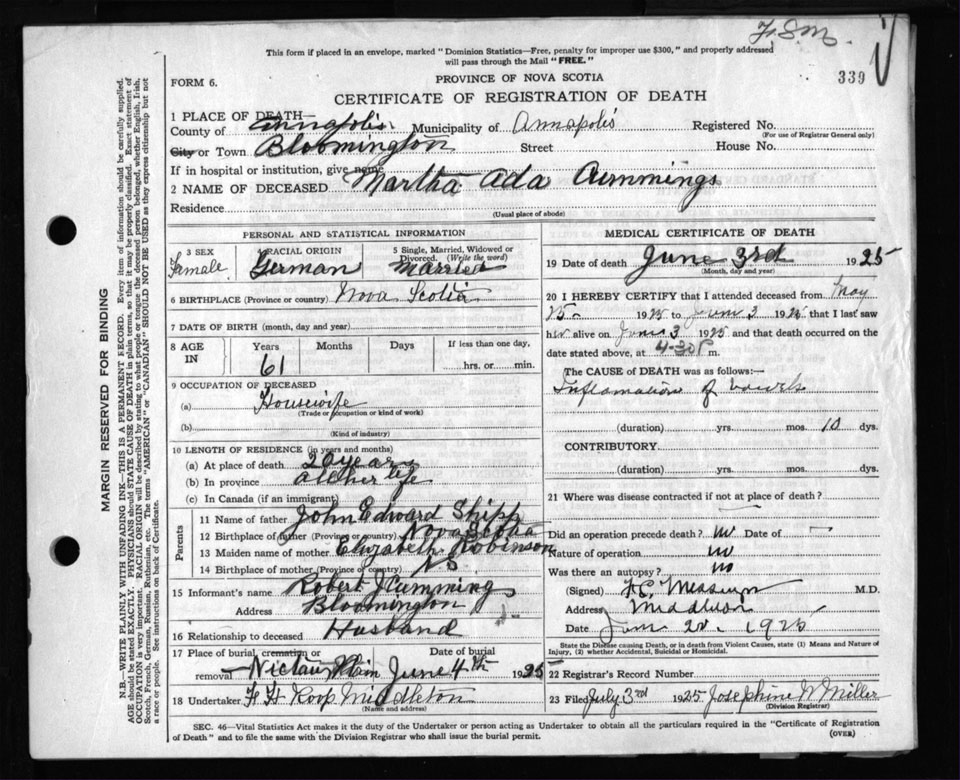 F.S.M.
This form if placed in an envelope, marked "Dominion Statistics—Free, penalty for improper use $300," and properly addressed
will pass through the Mail "FREE."
FORM 6.
PROVINCE OF NOVA SCOTIA
339
CERTIFICATE OF REGISTRATION OF DEATH
1 PLACE OF DEATH—
County of Annapolis Municipality of Annapolis Registered No.
(For use of Registrar General only)
City or Town Bloomington Street House No.
If in hospital or institution, give name
2 NAME OF DECEASED Martha Ada Cummings
Residence
(Usual place of abode)
PERSONAL AND STATISTICAL INFORMATION
3 SEX 4 RACIAL ORIGIN 5 Single, Married, Widowed or Divorced. (Write the word)
Female German Married
6 BIRTHPLACE (Province or country) Nova Scotia
7 DATE OF BIRTH (month, day and year)
8 AGE IN Years Months Days If less than one day,
61 hrs. or min.
9 OCCUPATION OF DECEASED
(a) Housewife
(Trade or occupation or kind of work)
(b)
(Kind of industry)
10 LENGTH OF RESIDENCE (in years and months)
(a) At place of death 20 years
(b) In province all her life
(c) In Canada (if an immigrant)
Parents
11 Name of father John Edward Shipp
12 Birthplace of father (Province or country) Nova Scotia
13 Maiden name of mother Elizabeth Robinson
14 Birthplace of mother (Province or country) NS
15 Informant's name Robert J Cummings
Address Bloomington
16 Relationship to deceased Husband
17 Place of burial, cremation or removal Date of burial
Nictaux Plain June 4th 1925
18 Undertaker F H Koop Middleton
(Name and address)
MEDICAL CERTIFICATE OF DEATH
19 Date of death June 3rd 1925
(Month, day and year)
20 I HEREBY CERTIFY that I attended deceased from May
25 1925 to June 3 1925 that I last saw
her alive on June 3 1925 and that death occurred on
date stated above, at 4-30 P m.
The CAUSE of DEATH was as follows:—
Inflamation of bowels
(duration) yrs. mos. 10 dys.
CONTRIBUTORY
(duration) yrs. mos. dys.
21 Where was disease contracted if not at place of death?
Did an operation precede death? no Date of —
Nature of operation no
Was there an autopsy? no
(Signed) M.D.
Address Middleton
Date June 1925
State the Disease causing Death, or in death from Violent Causes, state (1) Means and Nature of
Injury, (2) whether Accidental, Suicidal or Homicidal.
22 Registrar's Record Number
23 Filed July 3rd 1925 Josephine W Miller
(Division Registrar)
SEC. 46—Vital Statistics Act makes it the duty of the Undertaker or person acting as Undertaker to obtain all the particulars required in the "Certificate of Registration
of Death" and to file the same with the Division Registrar who shall issue the burial permit.
(OVER)
MARGIN RESERVED FOR BINDING
N.B.—WRITE PLAINLY WITH UNFADING INK—THIS IS A PERMANENT RECORD. Every item of information should be carefully supplied.
AGE should be stated EXACTLY. PHYSICIANS should STATE CAUSE OF DEATH in plain terms, so that it may be properly classified. Exact statement of
OCCUPATION is very important. RACIAL ORIGIN will be described by stating to what people or tongue the deceased person belonged, whether English, Irish,
Scotch, French, German, Russian, Ruthenian, etc. The terms "AMERICAN" or "CANADIAN" SHOULD NOT BE USED as they express citizenship but not
a race or people. See instructions on back of Certificate.